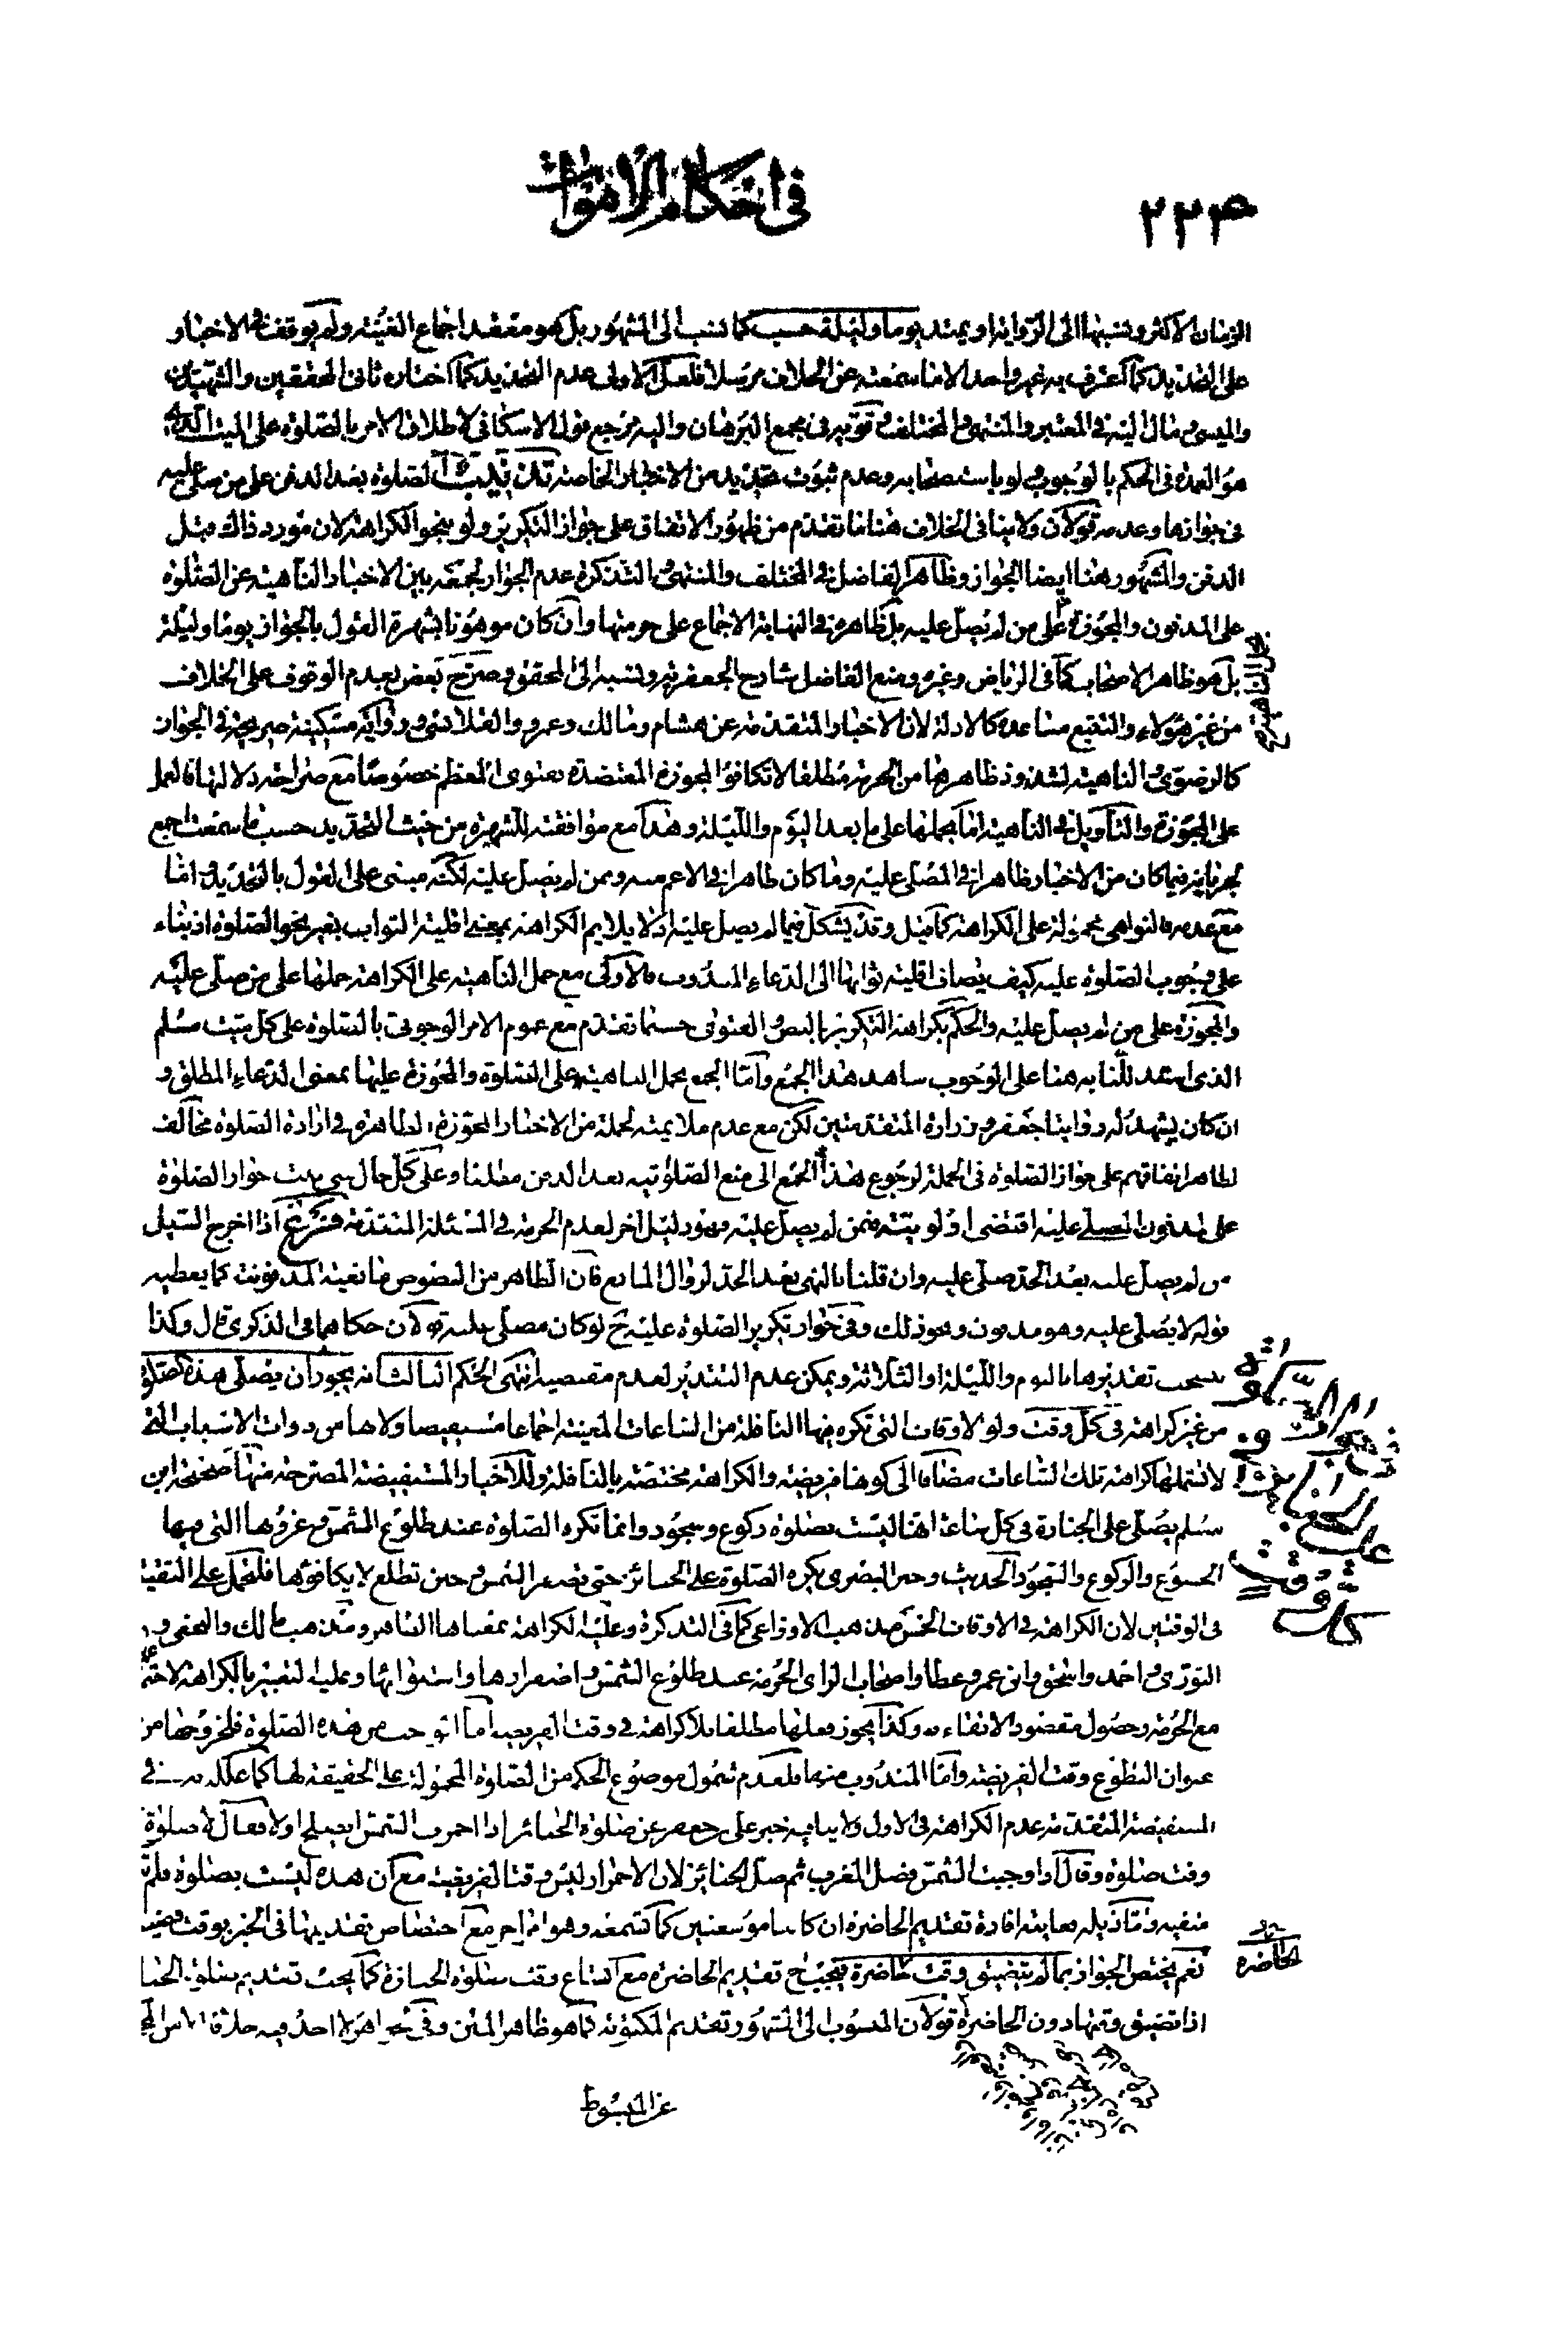 في احكام الاموات
٢٢٣
الزمان الاكثر ونسبتها الى الرواية او يمتد يوما وليلة حسب كما نسب الى المشهور بل هو معقد اجماع الغنية ولم يوقف في الاخبار
على التحديد كما اعترف به غير واحد الا ما سمعته عن الخلاف مرسلا فلعل الاولى عدم التحديد كما اختاره ثاني المحققين والشهيدين
والميسي ومال اليه في المعتبر والمنتهى والمختلف وقوّيه في مجمع البرهان واليه مرجع قول الاسكافي لاطلاق الامر بالصلوة على الميت الذي
هو العمدة في الحكم بالوجوب ولو باستصحابه وعدم ثبوت تحديد من الاخبار الخاصة الصلوة بعد الدفن على من صلى عليه
في جوازها وعدمه قولان ولا ينافي الخلاف هنا ما تقدم من ظهور الاتفاق على جواز التكرير ولو بنحو الكراهة لان مورد ذاك قبل
الدفن والمشهور هنا ايضا الجواز وظاهر الفاضل في المختلف والمنتهى والتذكرة عدم الجواز لجمعه بين الاخبار الناهية عن الصلوة
على المدفون والمجوزة على من لم يصل عليه بل ظاهره في النهاية الاجماع على حرمتها وان كان موهونا بشهرة القول بالجواز يوما وليلة
بل هو ظاهر الاصحاب كما في الرياض وغيره ومنع الفاضل شارح الجعفرية ونسبه الى المحقق وصرح بعض بعدم الوقوف على الخلاف
من غير هؤلاء والتقبع مساعده كالادلة لان الاخبار المتقدمة عن هشام ومالك وعمرو والقلانسي ورواية مسكينة صريحة في الجواز
كالرضوي والناهية لشذوذ ظاهرها من الحرمة مطلقا لا تكافؤ المجوزة المعتضدة بفتوى المعظم خصوصا مع صراحة دلالتها فالعمل
على المجوزة والتأويل في الناهية اما بحملها على ما بعد اليوم والليلة وهذا مع موافقته للشهرة من حيث التحديد حسب ما سمعت اجمع
لجريانه فيما كان من الاخبار ظاهرا في المصلى عليه وما كان ظاهرا في الاعم منه وممن لم يصل عليه لكنه مبني على القول بالتحديد واما
مع عدمه فالنواهي محمولة على الكراهة كما قيل وقد يشكل فيما لم يصل عليه اذ لا يلايم الكراهة بمعنى اقلية الثواب بغير نحو الصلوة اذ بناء
على وجوب الصلوة عليه كيف يضاف اقلية ثوابها الى الدعاء المندوب فالاولى مع حمل الناهية على الكراهة حملها على من صلى عليه
والمجوزة على من لم يصل عليه والحكم بكراهة التكرير بالنص والفتوى حسبما تقدم مع عموم الامر الوجوبي بالصلوة على كل ميت مسلم
الذي استدللنا به هنا على الوجوب شاهد هذا الجمع واما الجمع بحمل الناهية على الصلوة والمجوزة عليها بمعنى الدعاء المطلق و
ان كان يشهد له روايتا جعفر وزرارة المتقدمتين لكن مع عدم ملايمته لجملة من الاخبار المجوزة الظاهرة في ارادة الصلوة مخالف
لظاهر اتفاقهم على جواز الصلوة في الجملة لرجوع هذا الجمع الى منع الصلوتية بعد الدفن مطلقا وعلى كل حال متى ثبت جواز الصلوة
على المدفون المصلى عليه اقتضى اولويته فيمن لم يصل عليه وهو دليل اخر لعدم الحرمة في المسئلة المتقدمة اذا اخرج السيل
من لم يصل عليه بعد الحد صلى عليه وان قلنا بالنهي بعد الحد لزوال المانع فان الظاهر من النصوص مانعية المدفونية كما يعطيه
قوله لا يصلى عليه وهو مدفون ونحو ذلك وفي جواز تكرير الصلوة عليه ح لو كان مصلى عليه قولان حكاهما في الذكرى قال وكذا
يستحب تقديرها باليوم والليلة او الثلاثة ويمكن عدم التقدير لعدم مقتضيه انتهى الحكم الثالث انه يجوز ان يصلى هذه الصلوة
من غير كراهة في كل وقت ولو الاوقات التي تكره فيها النافلة من الساعات المعينة اجماعا مستفيضا ولانها من ذوات الاسباب التي
لا تشملها كراهة تلك الساعات مضافا الى كونها فريضة والكراهة مختصة بالنافلة وللاخبار المستفيضة المصرحة منها صحيحة ابن
مسلم يصلى على الجنازة في كل ساعة انها ليست بصلوة ركوع وسجود وانما تكره الصلوة عند طلوع الشمس وغروبها التي فيها
الخشوع والركوع والسجود الحديث وخبر البصري يكره الصلوة على الجنائز حتى تصفر الشمس وحين تطلع لا يكافؤها فلتحمل على التقية
في الوقتين لان الكراهة في الاوقات الخمس مذهب الاوزاعي كما في التذكرة وعليه الكراهة بمعناها الظاهر ومذهب مالك والنخعي و
الثوري واحمد واسحق وابن عمر وعطا واصحاب الراي الحرمة عند طلوع الشمس واصفرارها واستوائها وعليه التعبير بالكراهة
مع الحرمة وحصول مقصود الاتقاء به وكذا يجوز فعلها مطلقا بلا كراهة في وقت الفريضة اما الواجب من هذه الصلوة فلخروجها من
عنوان التطوع وقت الفريضة واما المندوب منها فلعدم شمول موضوع الحكم من الصلوة المحمولة على الحقيقة لها كما علله به في
المستفيضة المتقدمة عدم الكراهة في الاول ولا ينافيه خبر علي بن جعفر عن صلوة الجنائز اذا احمرت الشمس ايصلح اولا فقال لا صلوة
وقت صلوة وقال اذا وجبت الشمس فصل المغرب ثم صل الجنائز لان الاحمرار ليس وقتا لفريضة مع ان هذه ليست بصلوة
منفية واما ذيله فغايته افادة تقديم الحاضرة ان كانتا موسعتين كما تسمعه وهو امر اخر مع اختصاص تقديمها في الخبر بوقت
نعم يختص الجواز بما لم يتضيق وقت حاضرة فيجب ح تقديم الحاضرة مع اتساع وقت صلوة الجنازة كما يجب تقديم صلوة
اذا تضيق وقتها دون الحاضرة قولان المنسوب الى المشهور تقديم المكتوبة كما هو ظاهر المتن
عن المبسوط
الحاضرة